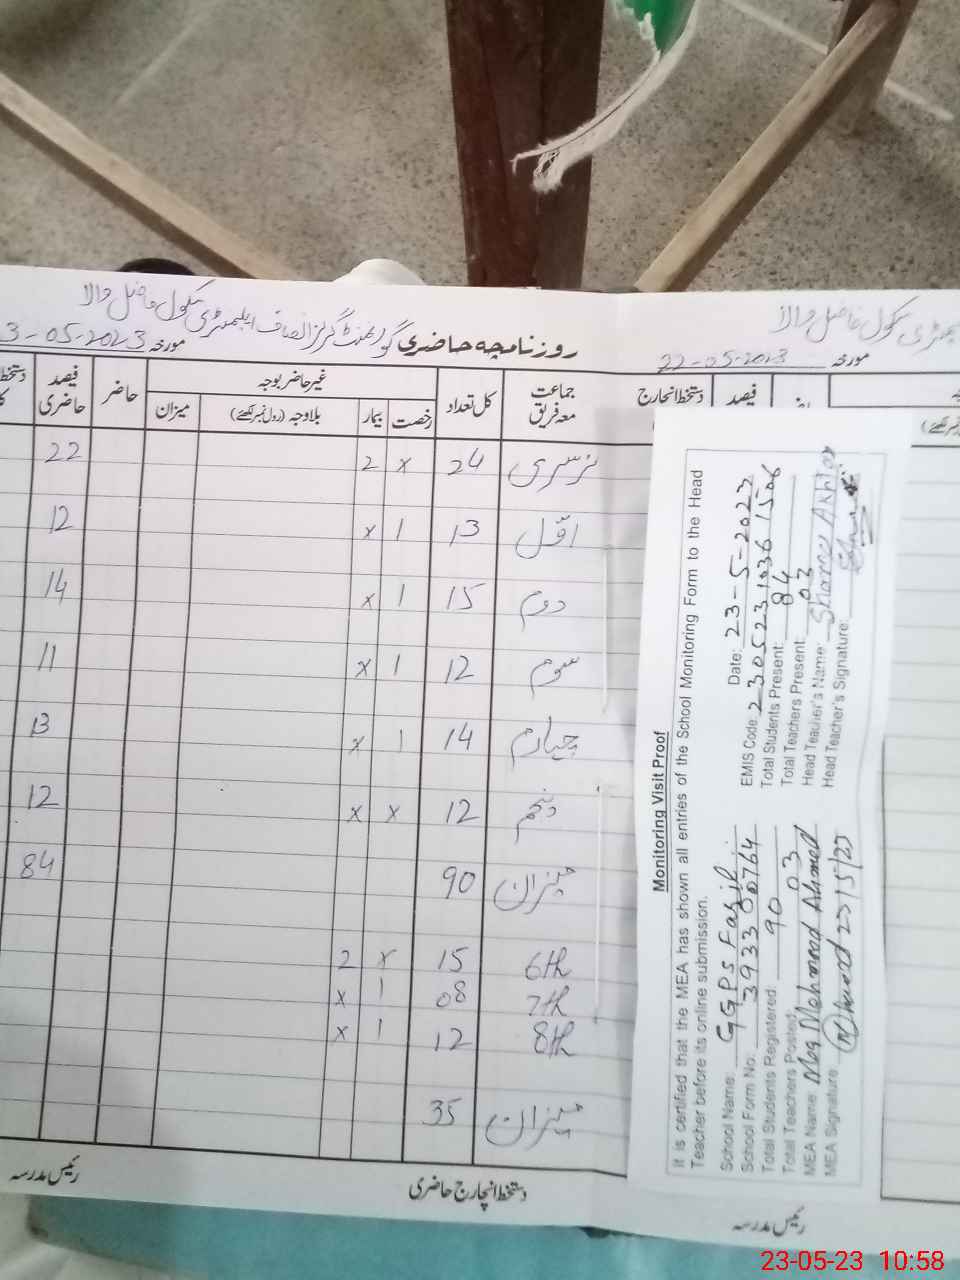 روزنامچہ حاضری گورنمنٹ گرلز انصاف ایلیمنٹری سکول فاضل والا
مورخہ 3-05-2023
جماعت معہ فریق کل تعداد غیر حاضر بوجہ حاضر فیصد حاضری
رخصت بیمار بلاوجہ (رول نمبر لکھئے) میزان
نرسری 24 x 2 22
اوّل 13 1 x 12
دوم 15 1 x 14
سوم 12 1 x 11
چہارم 14 1 x 13
پنجم 12 x x 12
میزان 90 84
6th 15 x 2
7th 08 1 x
8th 12 1 x
میزان 35
دستخط انچارج حاضری
رئیس مدرسہ
سکول فاضل والا
مورخہ 22-05-2023
دستخط انچارج فیصد
رئیس مدرسہ
Monitoring Visit Proof
It is certified that the MEA has shown all entries of the School Monitoring Form to the Head
Teacher before its online submission.
Date: 23-5-2023
School Name: GGPS Fazil EMIS Code:
School Form No: Total Students Present: 84
Total Students Registered: 90 Total Teachers Present: 03
Total Teachers Posted: 03 Head Teacher's Name:
MEA Name Mehmood Ahmed Head Teacher's Signature:
MEA Signature
23-05-23 10:58